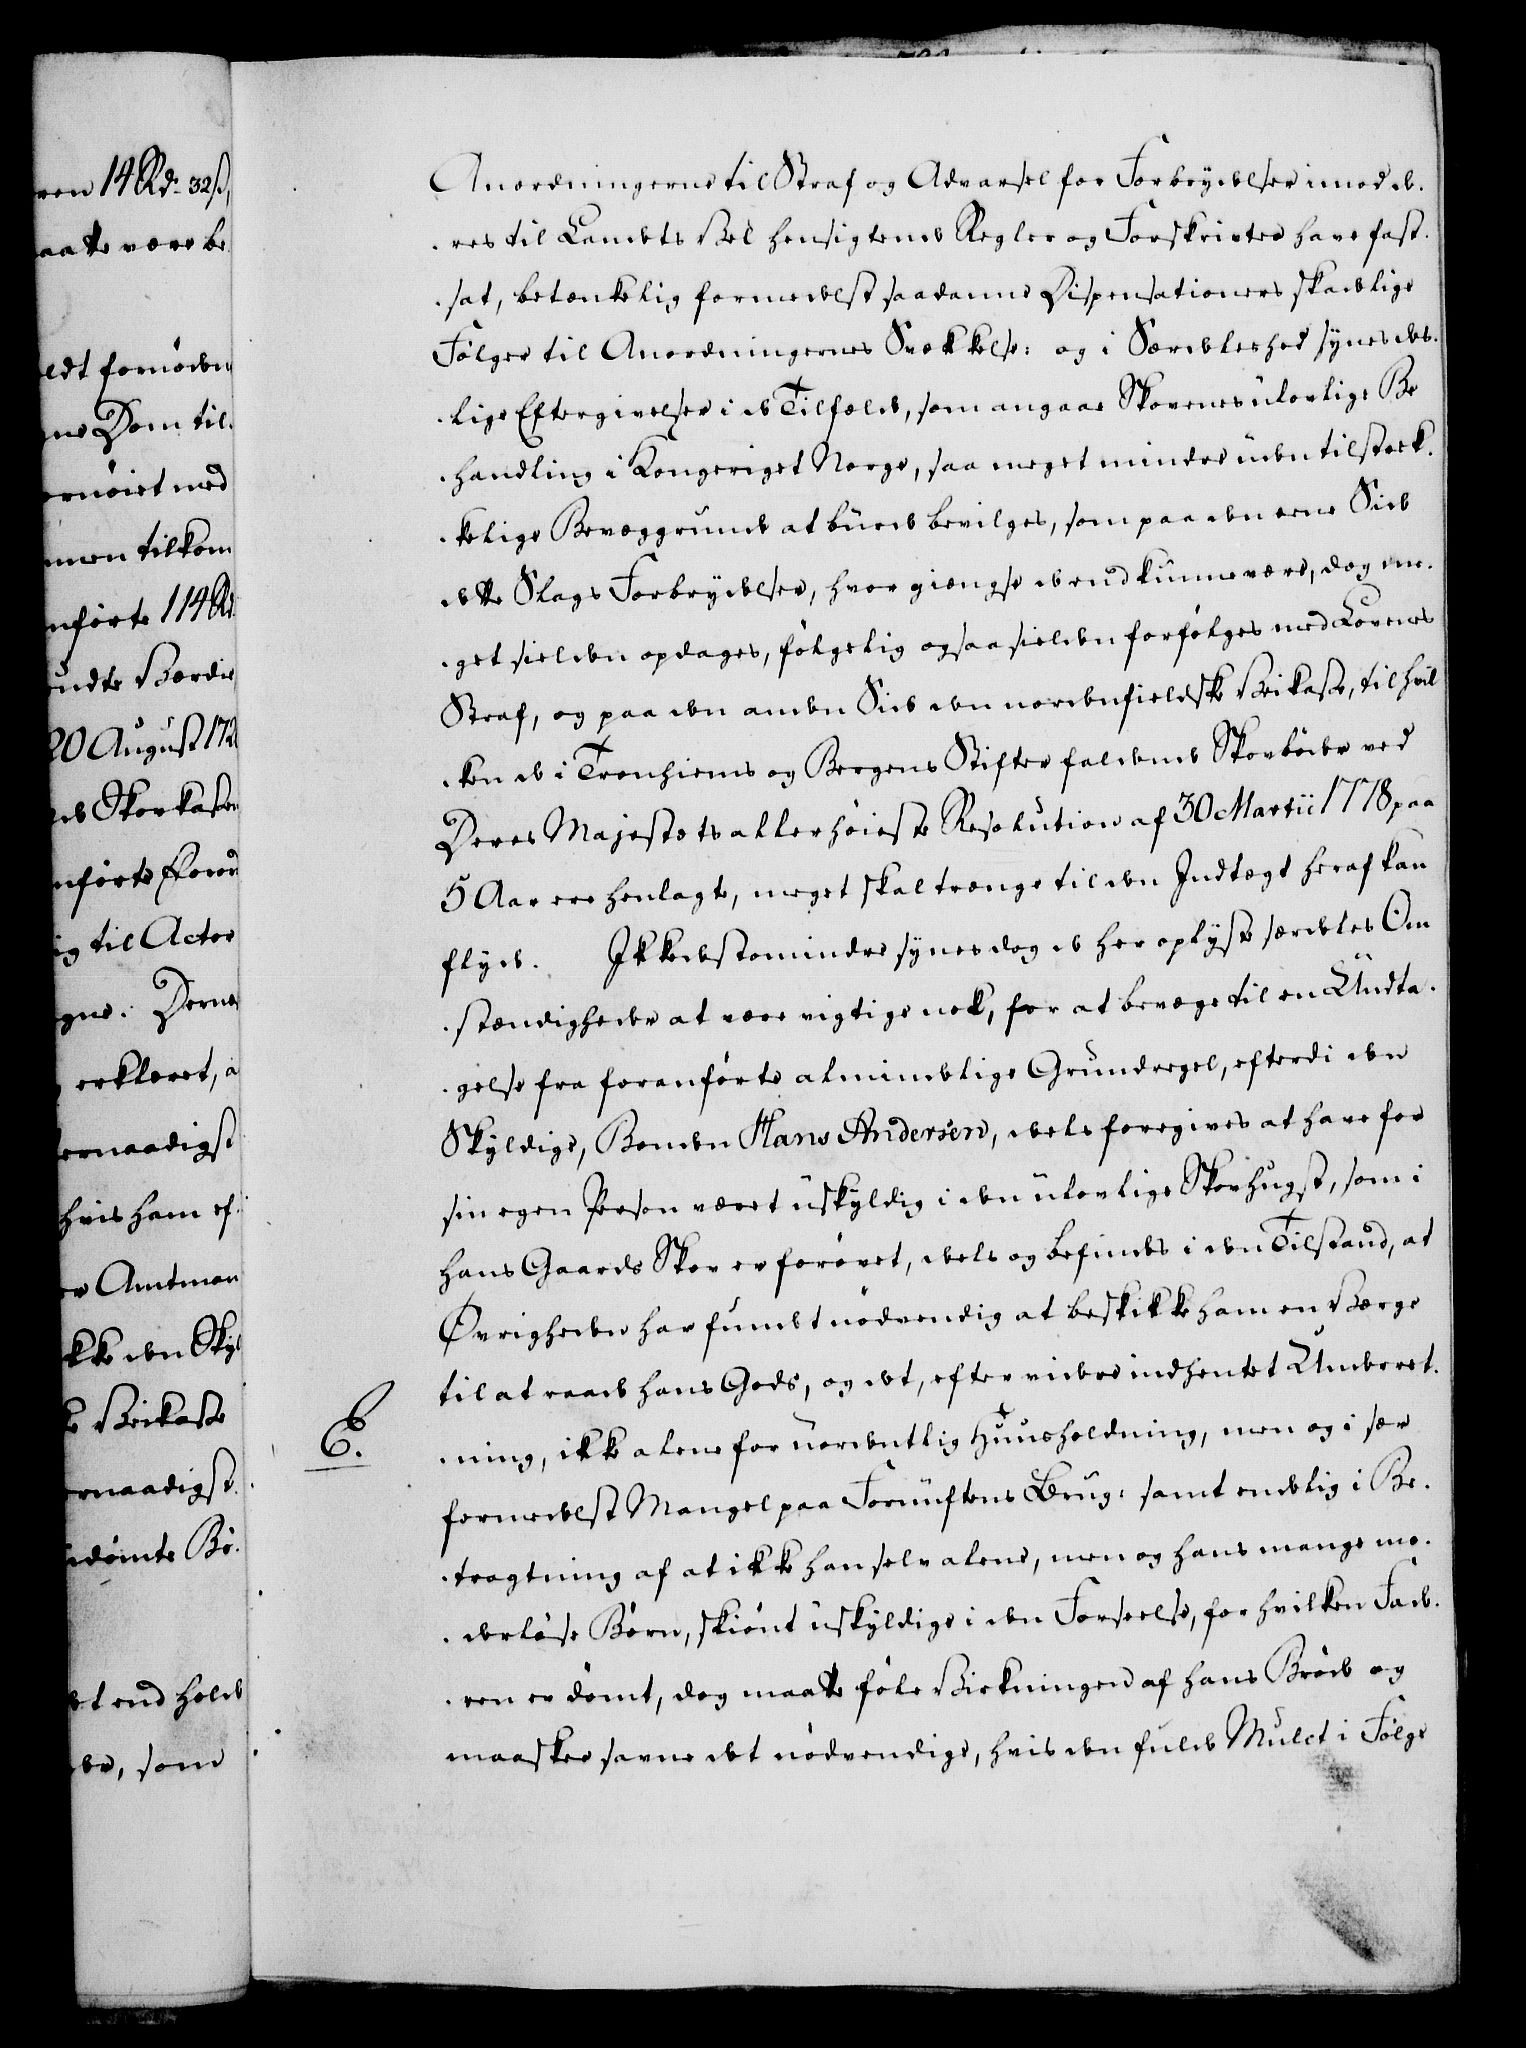 ren 14 Rd. 32 ß,
aatte være be
ldt fornøden
ne Dom til.
ornøiet med
men tilkom
nførte 114 Rd
undte Værdie
20 August 172
de Skovkassen
nførte Foror
ig til Actor
gne. Derne
erklæret, a
ernaadigst
hvis ham ef
er Amtman
kke den Skyl
e Veikasse
ernaadigst.
idømte Bø.
det end holde
der, som
Anordningerne til Straf og Advarsel for Forbrydelser imod de.
res til Landets Vel hensigtende Regler og Forskrivter have fast.
sat, betænkelig formedelst saadanne Dispensationers skadelige
Følger til Anordningernes Svækkelse: og i Særdeleshed synes des.
lige Eftergivelser i de Tilfælde, som angaae Skovenes ulovlige Be
handling i Kongeriget Norge, saa meget mindre uden tilstræk.
kelige Bevæggrunde at burde bevilges, som paa den eene Side
dette Slags Forbrydelser, hvor giængse de end kunne være, dog me.
get sielden opdages, følgelig ogsaa sielden forfølges med Lovenes
Straf, og paa den anden Side den nordenfieldske Veikasse, til hvil
ken de i Tronhiems og Bergens Stifter faldende Skovbøder ved
Deres Majestæts allerhøieste Resolution af 30 Martii 1778 paa
5 Aar ere henlagte, meget skal trænge til den Indtægt heraf kan
flyde. Ikke destomindre synes dog de her oplyste særdeles Om
stændigheder at være vigtige nok, for at bevæge til en Undta.
gelse fra foranførte almindelige Grundregel, efterdi den
Skyldige, Bonden Hans Andersen, deels foregives at have for
sin egen Person været uskyldig i den ulovlige Skovhugst, som i
hans Gaards Skov er forøvet, deels og befindes i den Tilstand, at
Øvrigheden har fundet nødvendig at beskikke ham en Værge
til at raade hans Gods, og det, efter videre indhentet Underret.
6.
ning, ikke alene for uordentlig Huusholdning, men og i sær
formedelst Mangel paa Fornuftens Brug: samt endelig i Be.
tragtning af at ikke han selv alene, men og hans mange mo.
derløse Børn, skiønt uskyldige i den Forseelse, for hvilken Fade.
ren er dømt, dog maatte føle Virkningen af hans Brøde og
maaskee savne det nødvendige, hvis den fulde Mulct i Følge